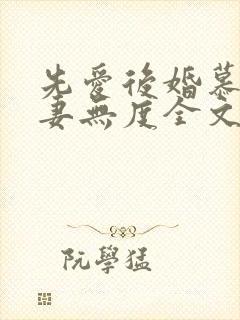 先愛後婚慕
妻無度全文
阮學猛